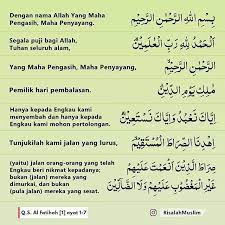 Dengan nama Allah Yang Maha
Pengasih, Maha Penyayang.
بِسْمِ اللَّهِ الرَّحْمَٰنِ الرَّحِيْمِ
Segala puji bagi Allah,
Tuhan seluruh alam,
اَلْحَمْدُ لِلَّهِ رَبِّ الْعَالَمِيْنَ
Yang Maha Pengasih, Maha Penyayang,
الرَّحْمَٰنِ الرَّحِيْمِ
Pemilik hari pembalasan.
مَالِكِ يَوْمِ الدِّيْنِ
Hanya kepada Engkau kami
menyembah dan hanya kepada
Engkau kami mohon pertolongan.
إِيَّاكَ نَعْبُدُ وَإِيَّاكَ نَسْتَعِيْنُ
Tunjukilah kami jalan yang lurus,
اِهْدِنَا الصِّرَاطَ الْمُسْتَقِيْمَ
(yaitu) jalan orang-orang yang telah
Engkau beri nikmat kepadanya;
bukan (jalan) mereka yang
dimurkai, dan bukan
pula (jalan) mereka yang sesat.
صِرَاطَ الَّذِيْنَ أَنْعَمْتَ عَلَيْهِمْ
غَيْرِ الْمَغْضُوْبِ عَلَيْهِمْ وَلَا الضَّالِّيْنَ
Q.S. Al Fatihah [1] ayat 1-7
RisalahMuslim